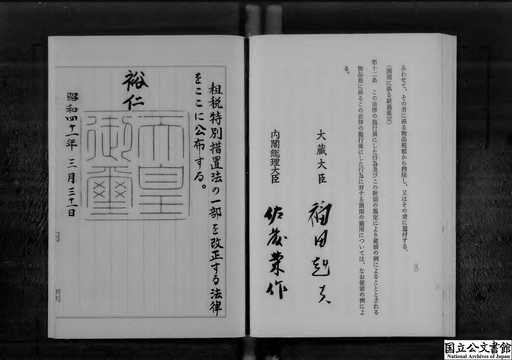 あわせて、その者に係る物品税額から控除し、又はその者に還付する。
(罰則に係る経過規定)
第十二条　この法律の施行前にした行為及びこの附則の規定により従前の例によることとされる
物品税に係るこの法律の施行後にした行為に対する罰則の適用については、なお従前の例によ
る。
大蔵大臣　福田赳夫
内閣総理大臣　佐藤栄作
租税特別措置法の一部を改正する法律
をここに公布する。
裕仁
天皇御璽
昭和四十一年三月三十一日
国立公文書館
National Archives of Japan